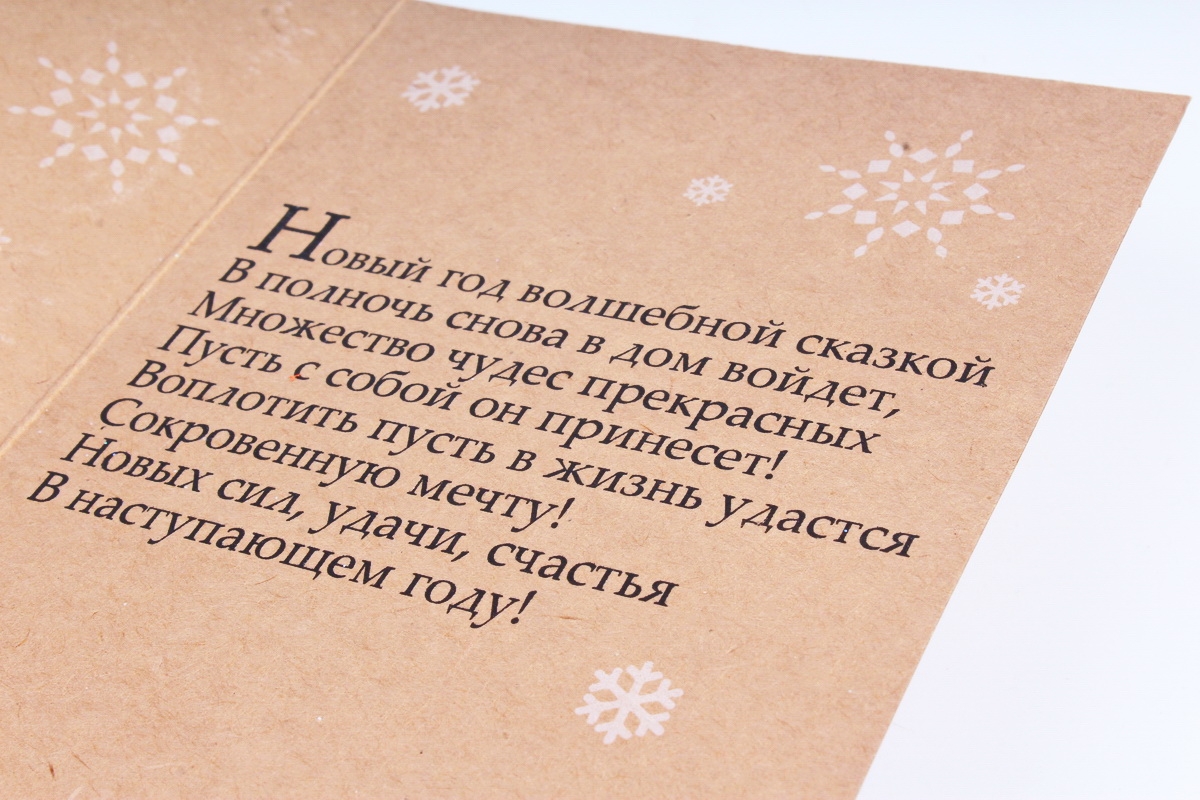 Новый год волшебной сказкой
В полночь снова в дом войдет,
Множество чудес прекрасных
Пусть с собой он принесет!
Воплотить пусть в жизнь удастся
Сокровенную мечту!
Новых сил, удачи, счастья
В наступающем году!